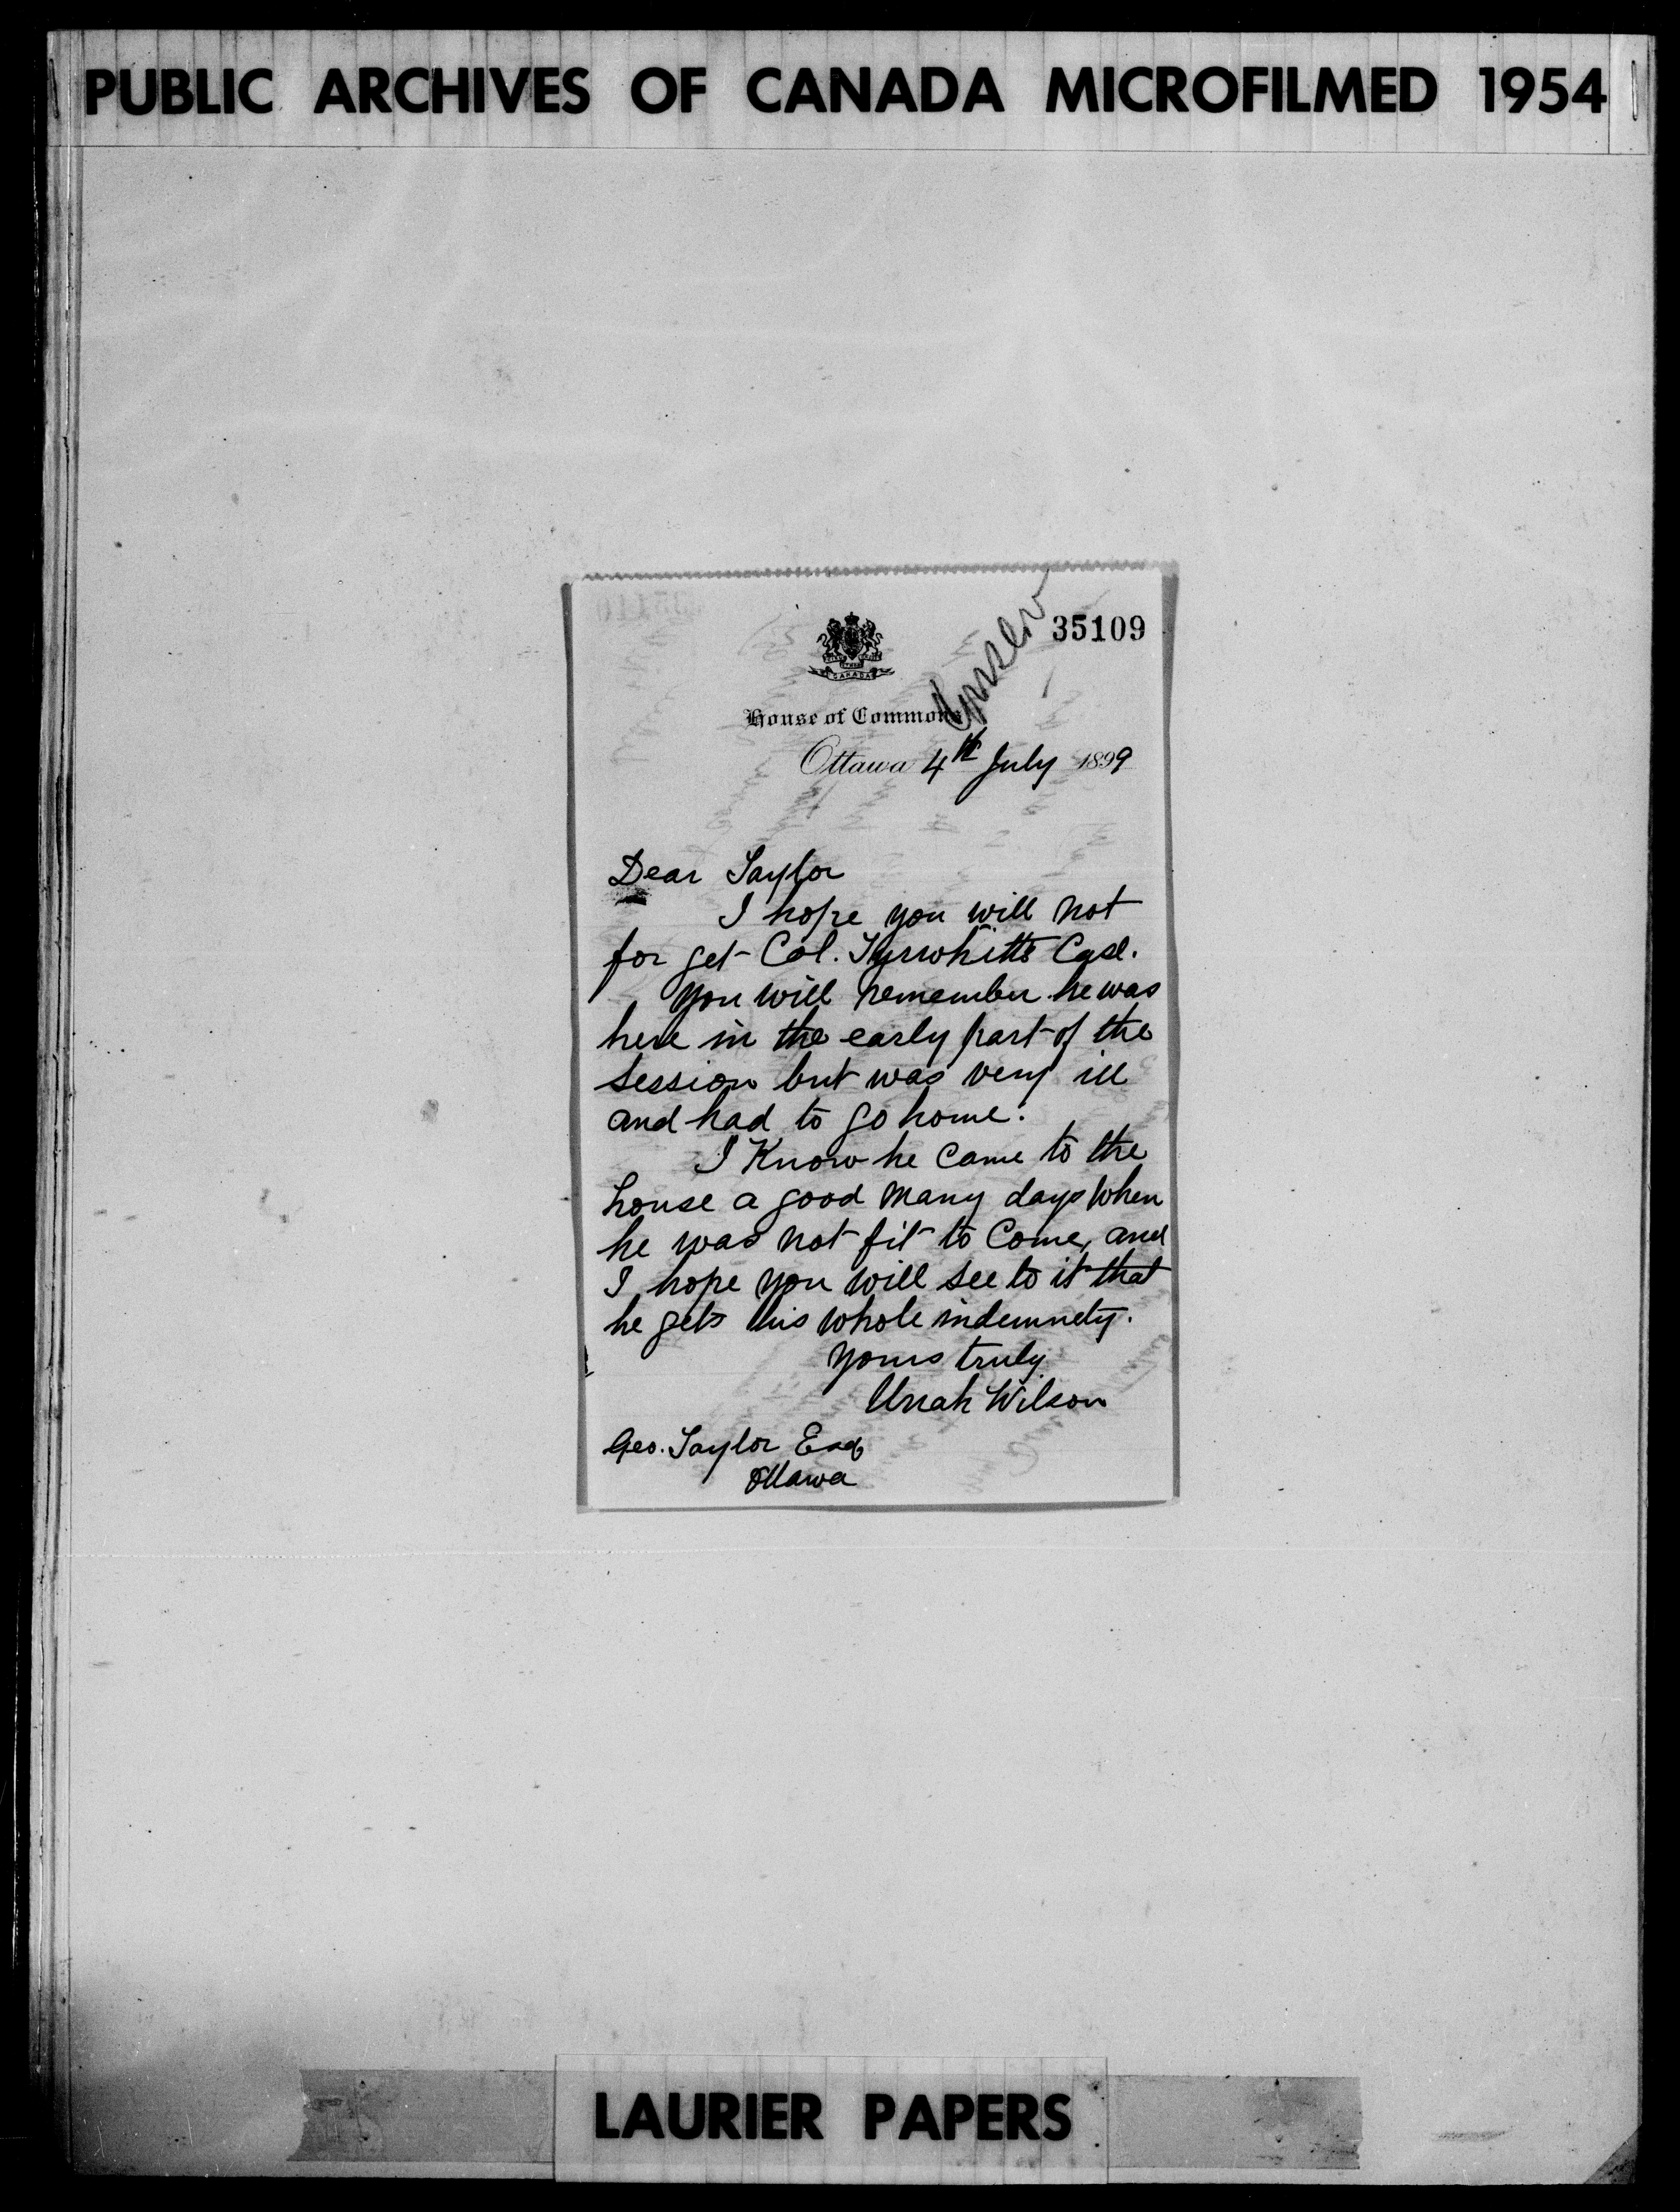 PUBLIC ARCHIVES OF CANADA MICROFILMED 1954
35109
CANADA
House of Commons
Ottawa 4th July 1899
Dear Taylor
I hope you will not
for get Col. Tyrwhitts Case.
You will remember he was
here in the early part of the
session but was very ill
and had to go home.
I Know he came to the
house a good many days when
he was not fit to Come, and
I hope you will see to it that
he gets his whole indemnety.
Yours truly
Uriah Wilson
Geo. Taylor Esq
Ottawa
LAURIER PAPERS